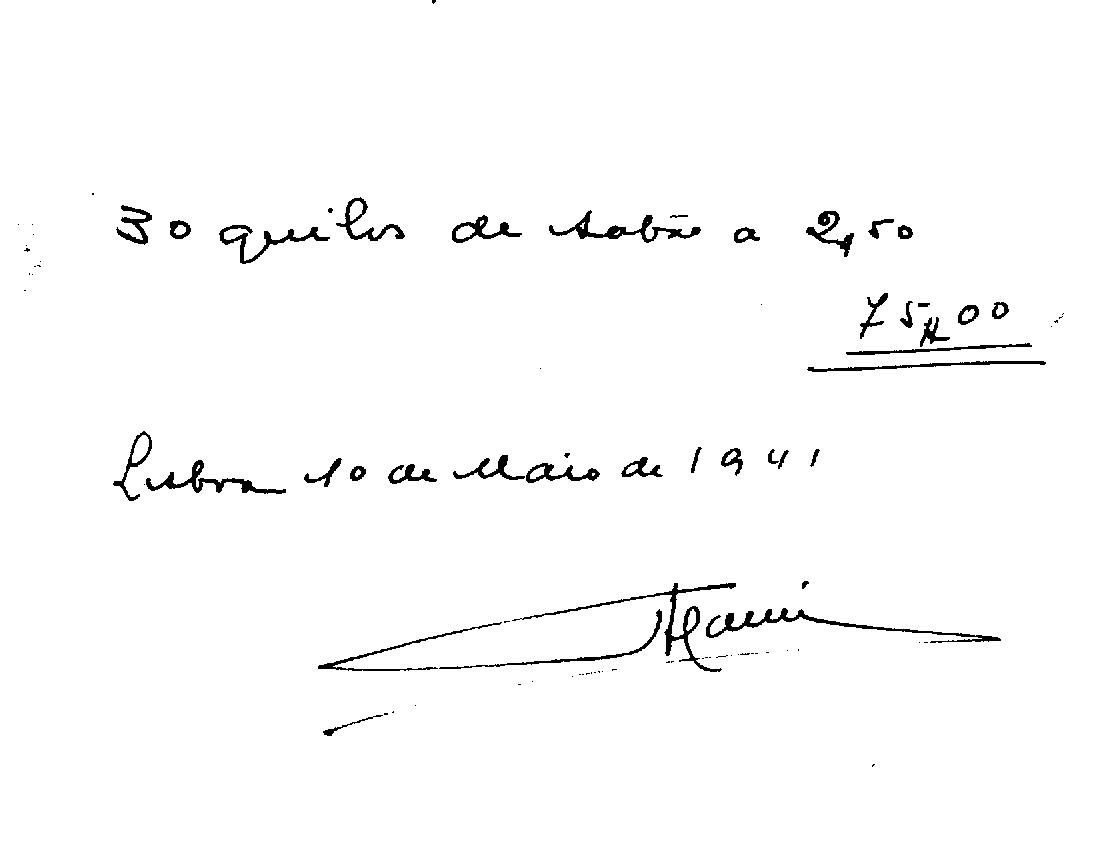 30 quilos de sabão a 2,50
75$00
Lisboa 10 de Maio de 1941